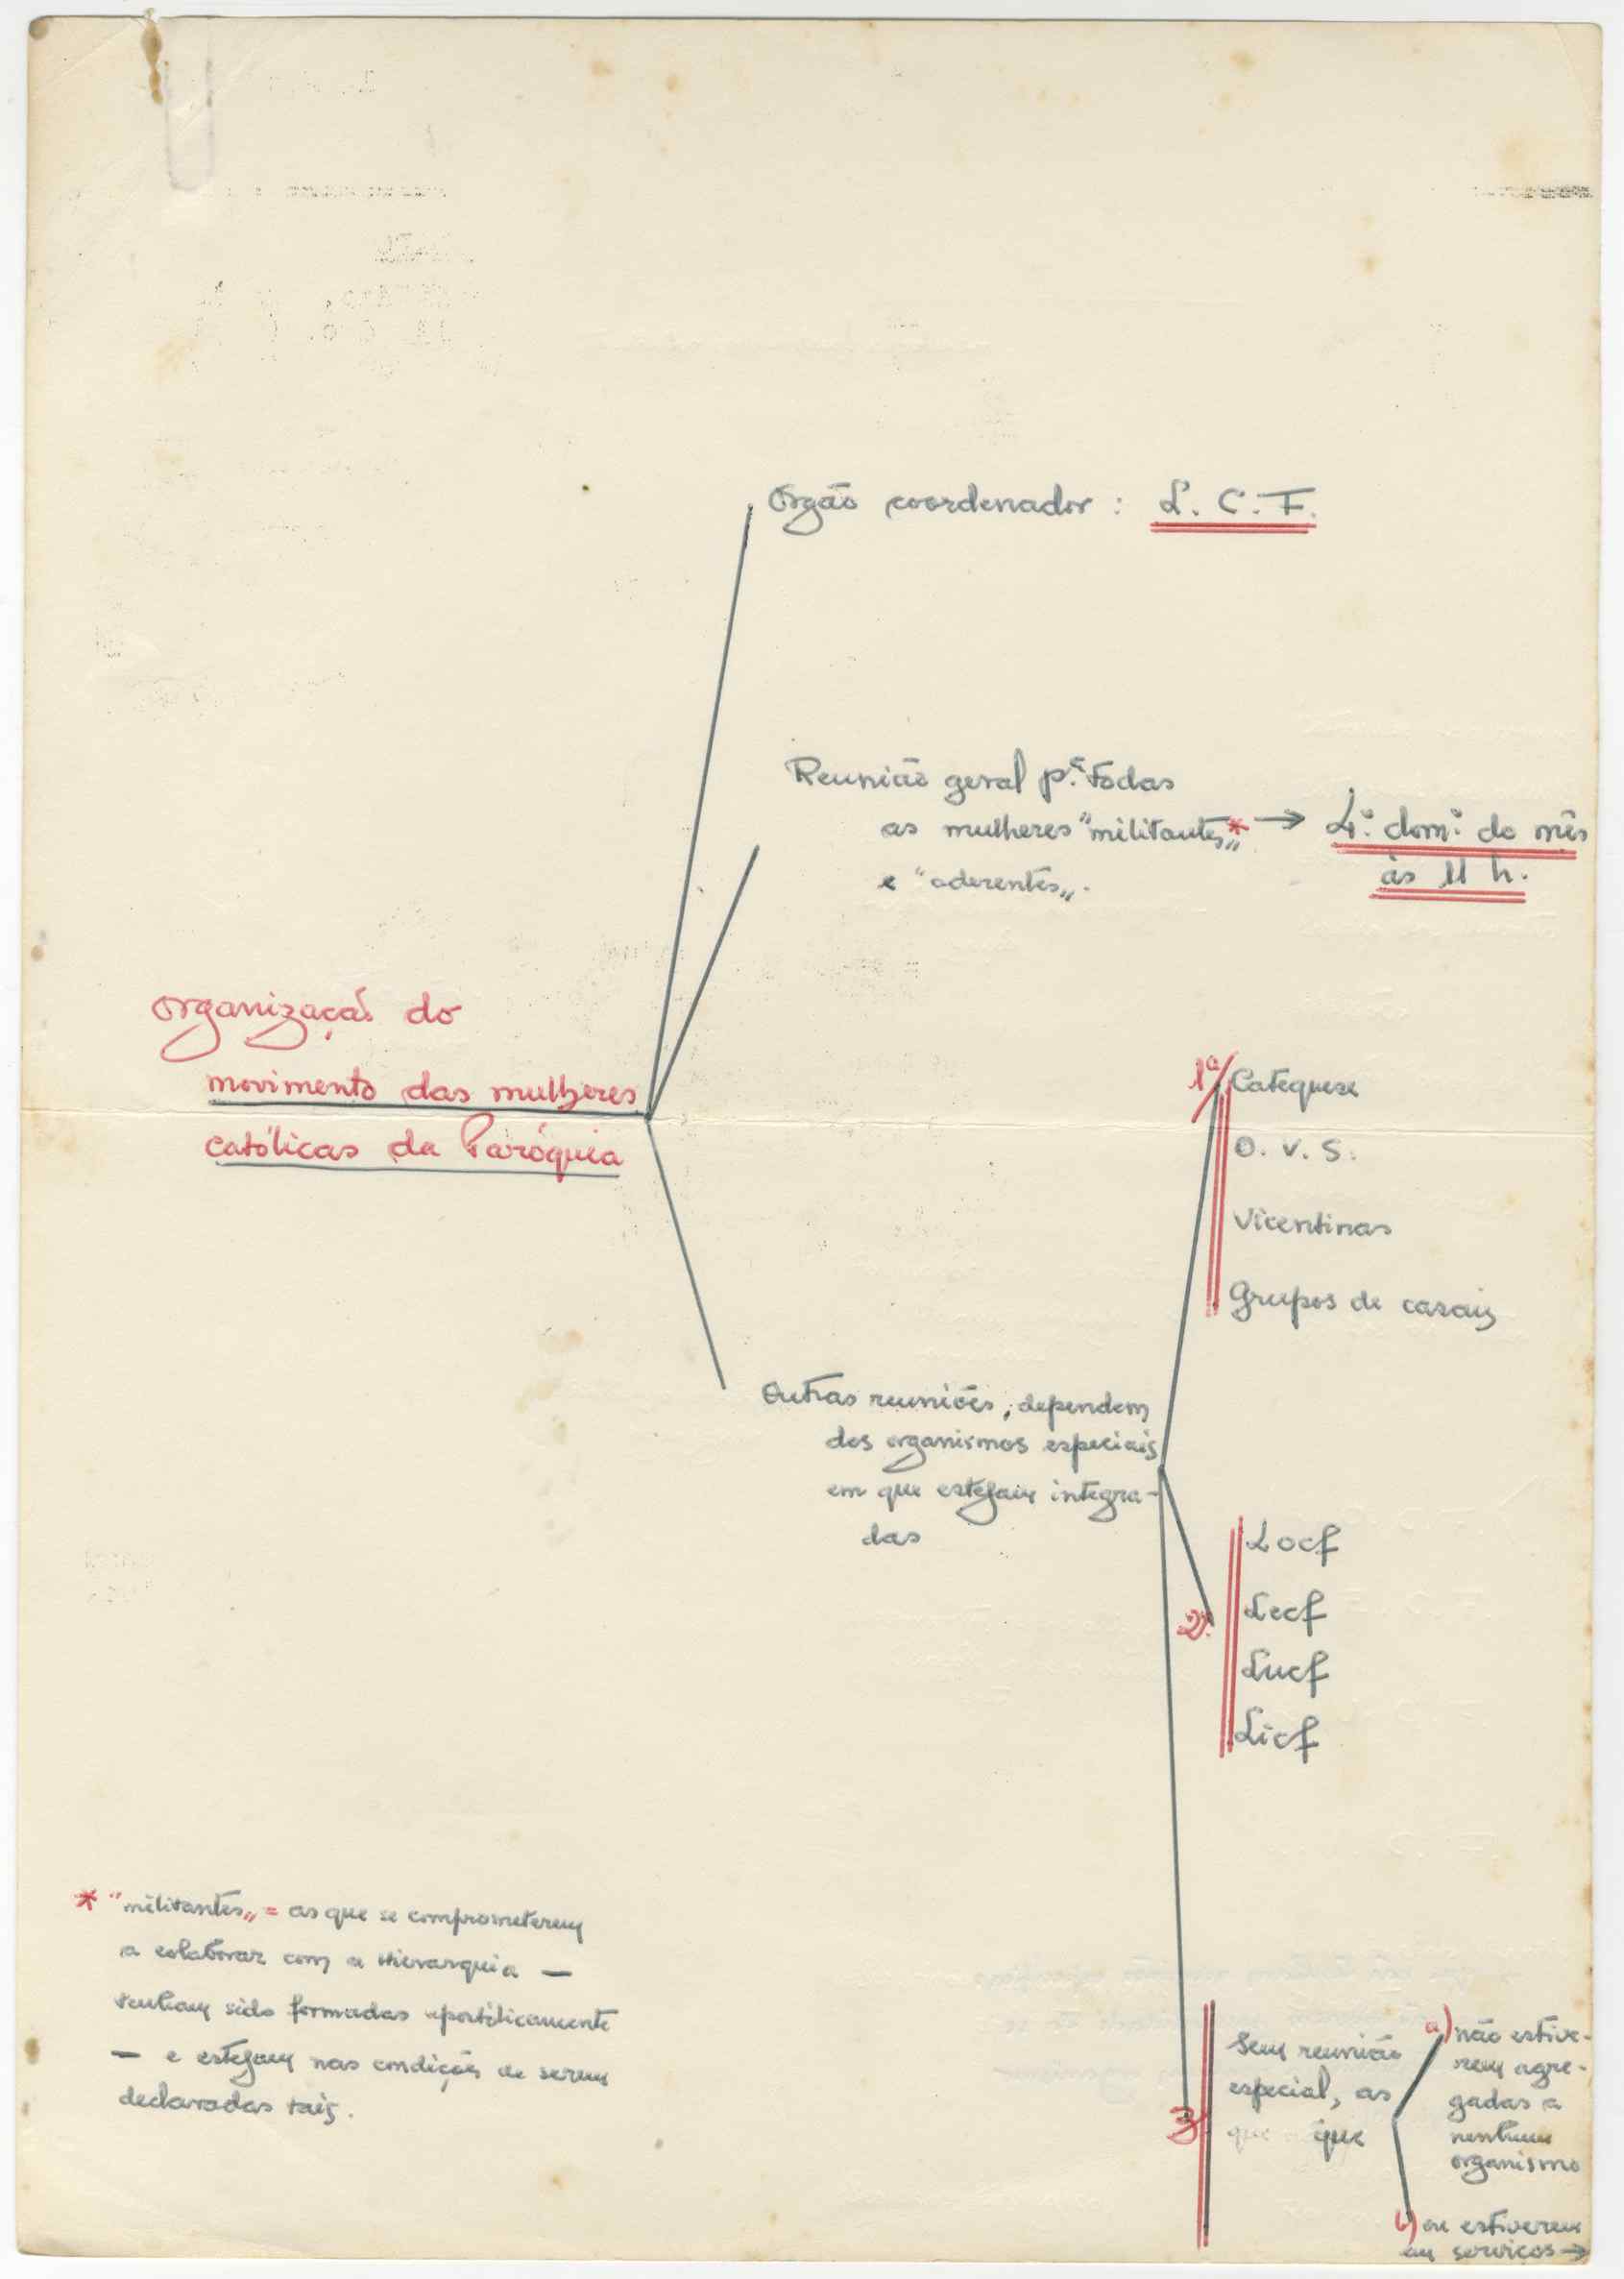 Organização do
movimento das mulheres
católicas da Paróquia
Orgão coordenador : L. C. F.
Reunião geral pª. todas
as mulheres "militantes„* → 4.º dom.º do mês
às 11 h.
e "aderentes„.
Outras reuniões, dependem
dos organismos especiais
em que estejam integra-
das
1º/ Catequese
O. V. S.
Vicentinas
Grupos de casais
2º. Locf
Lecf
Lucf
Licf
3/ Sem reunião
especial, as
que que
a) não estive-
rem agre-
gadas a
nenhum
organismo
b) ou estiverem
em serviços →
* "militantes„ = as que se comprometerem
a colaborar com a Hierarquia —
tenham sido formadas apostòlicamente
— e estejam nas condições de serem
declaradas tais.